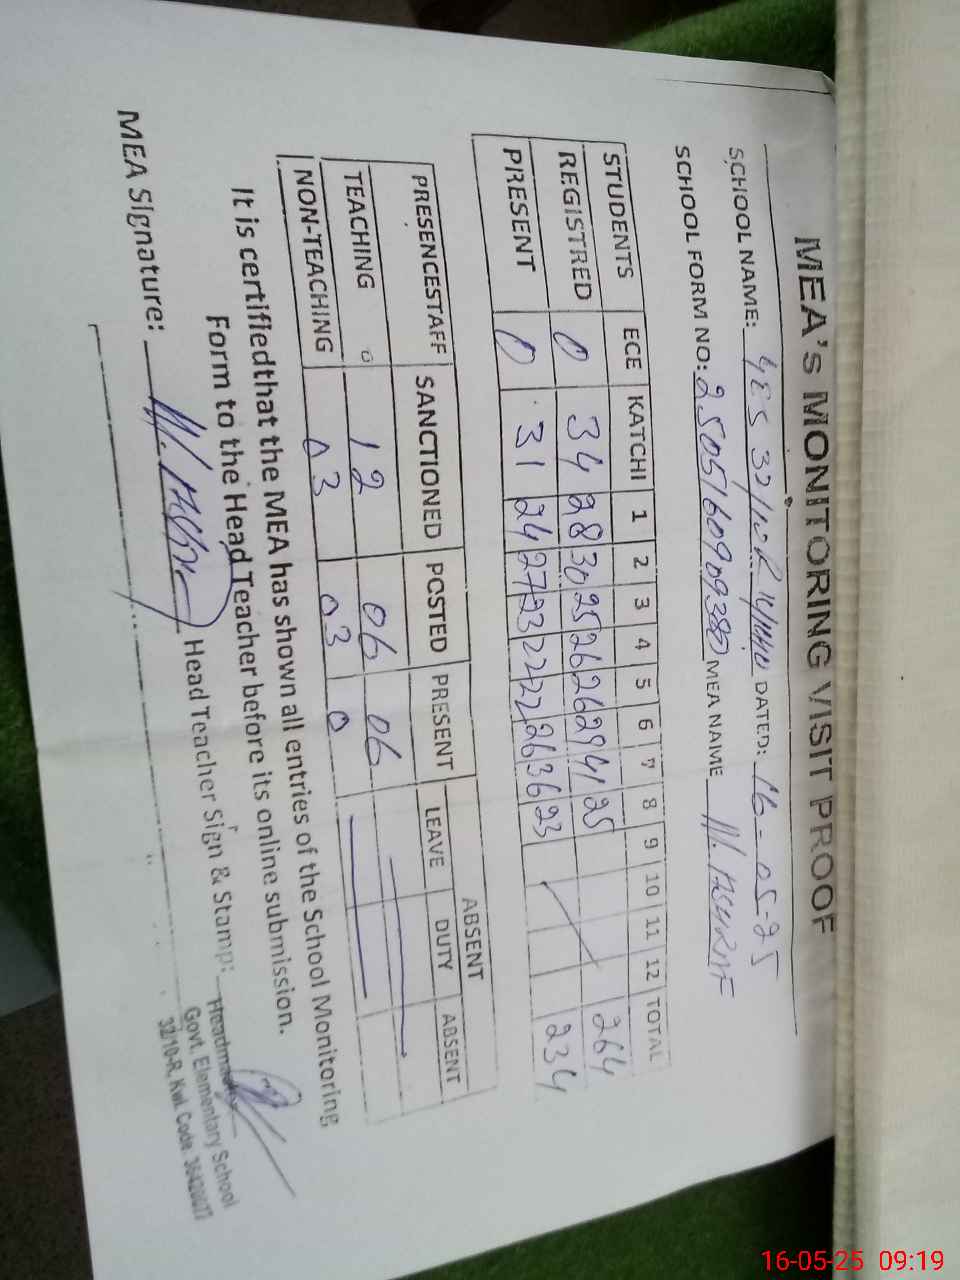 MEA's MONITORING VISIT PROOF
SCHOOL NAME: GES 32/10R DATED: 16-05-25
SCHOOL FORM NO: MEA NAME M. ASHRAF
STUDENTS ECE KATCHI 1 2 3 4 5 6 7 8 9 10 11 12 TOTAL
REGISTRED 0 34 28 30 25 26 26 29 41 25 264
PRESENT 0 31 24 27 23 22 22 26 36 23 234
PRESENCESTAFF SANCTIONED POSTED PRESENT ABSENT
LEAVE DUTY ABSENT
TEACHING 12 06 06
NON-TEACHING 03 03 0
It is certifiedthat the MEA has shown all entries of the School Monitoring
Form to the Head Teacher before its online submission.
MEA Signature: Head Teacher Sign & Stamp:
Govt. Elementary School
32/10-R, Kwl. Code.
16-05-25 09:19